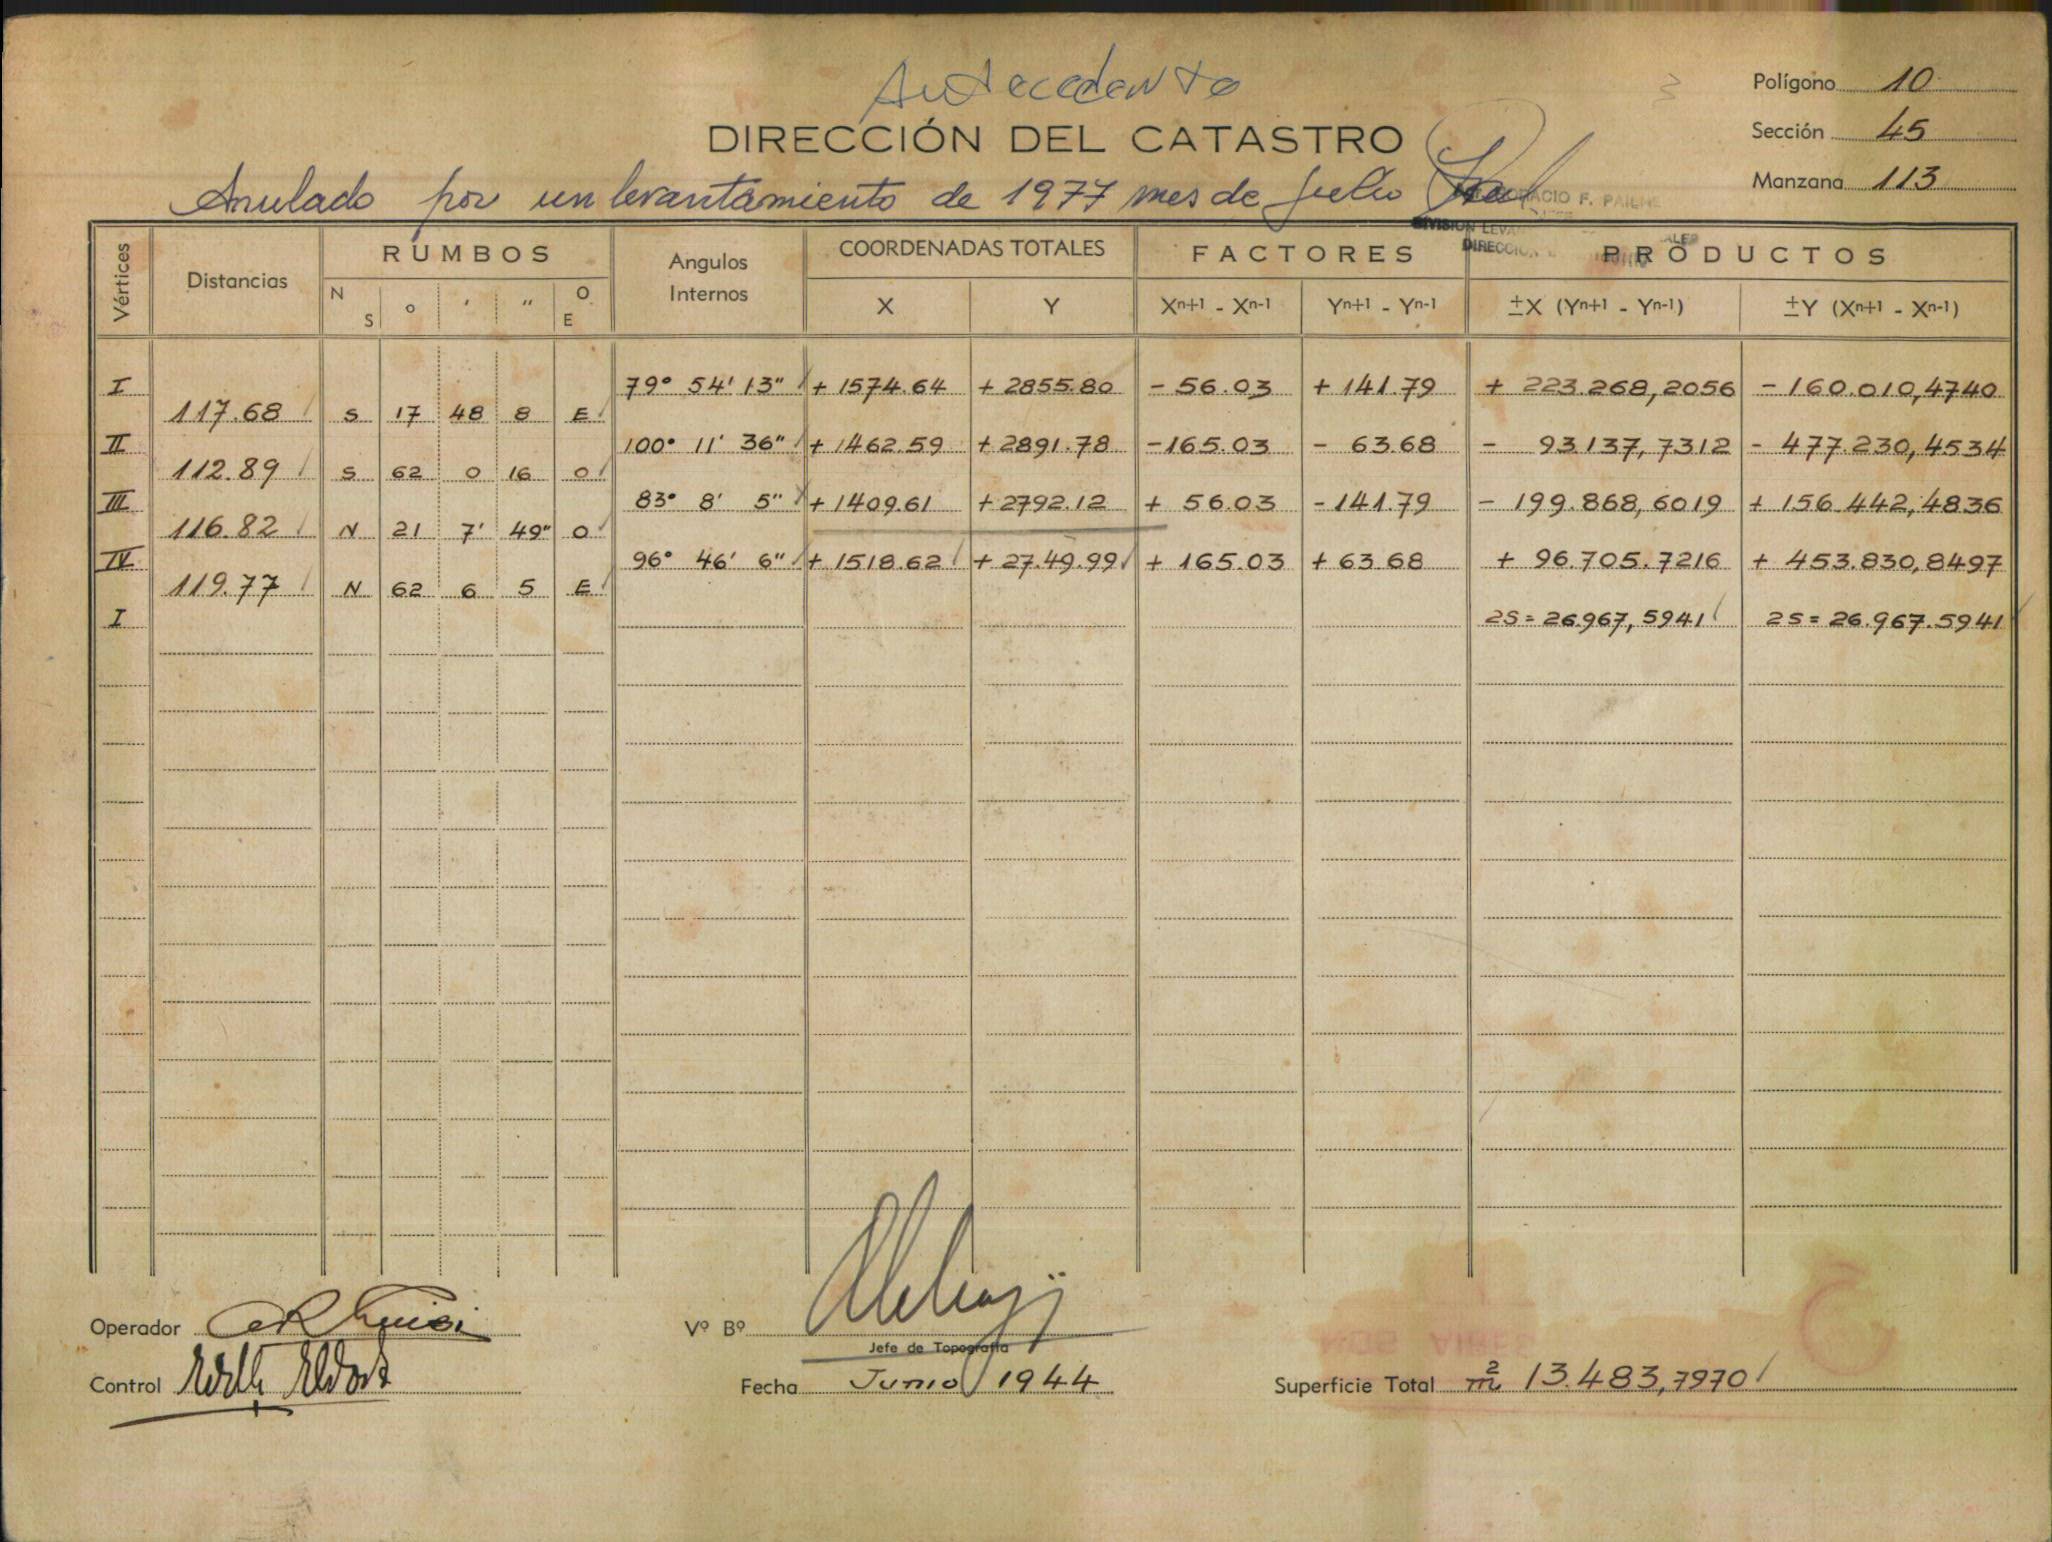 Antecedente
Polígono 10
DIRECCIÓN DEL CATASTRO
Sección 45
Manzana 113
Anulado por un levantamiento de 1977 mes de Julio
HORACIO F. PAILHE
DIVISION LEVA
DIRECCION
Vértices Distancias RUMBOS Angulos Internos COORDENADAS TOTALES FACTORES PRODUCTOS
N S o ′ ″ O E X Y Xn+1 - Xn-1 Yn+1 - Yn-1 ±X (Yn+1 - Yn-1) ±Y (Xn+1 - Xn-1)
I 79° 54' 13" + 1574.64 + 2855.80 - 56.03 + 141.79 + 223.268,2056 - 160.010,4740
117.68 S 17 48 8 E
II 100° 11' 36" + 1462.59 + 2891.78 -165.03 - 63.68 - 93.137,7312 - 477.230,4534
112.89 S 62 0 16 O
III 83° 8' 5" + 1409.61 + 2792.12 + 56.03 - 141.79 - 199.868,6019 + 156.442,4836
116.82 N 21 7' 49" O
IV 96° 46' 6" + 1518.62 + 27.49.99 + 165.03 + 63.68 + 96.705.7216 + 453.830,8497
119.77 N 62 6 5 E
I 2S = 26.967,5941 2S = 26.967.5941
Operador
Vº Bº
Jefe de Topografía
Control
Fecha Junio 1944
Superficie Total m2 13.483,7970